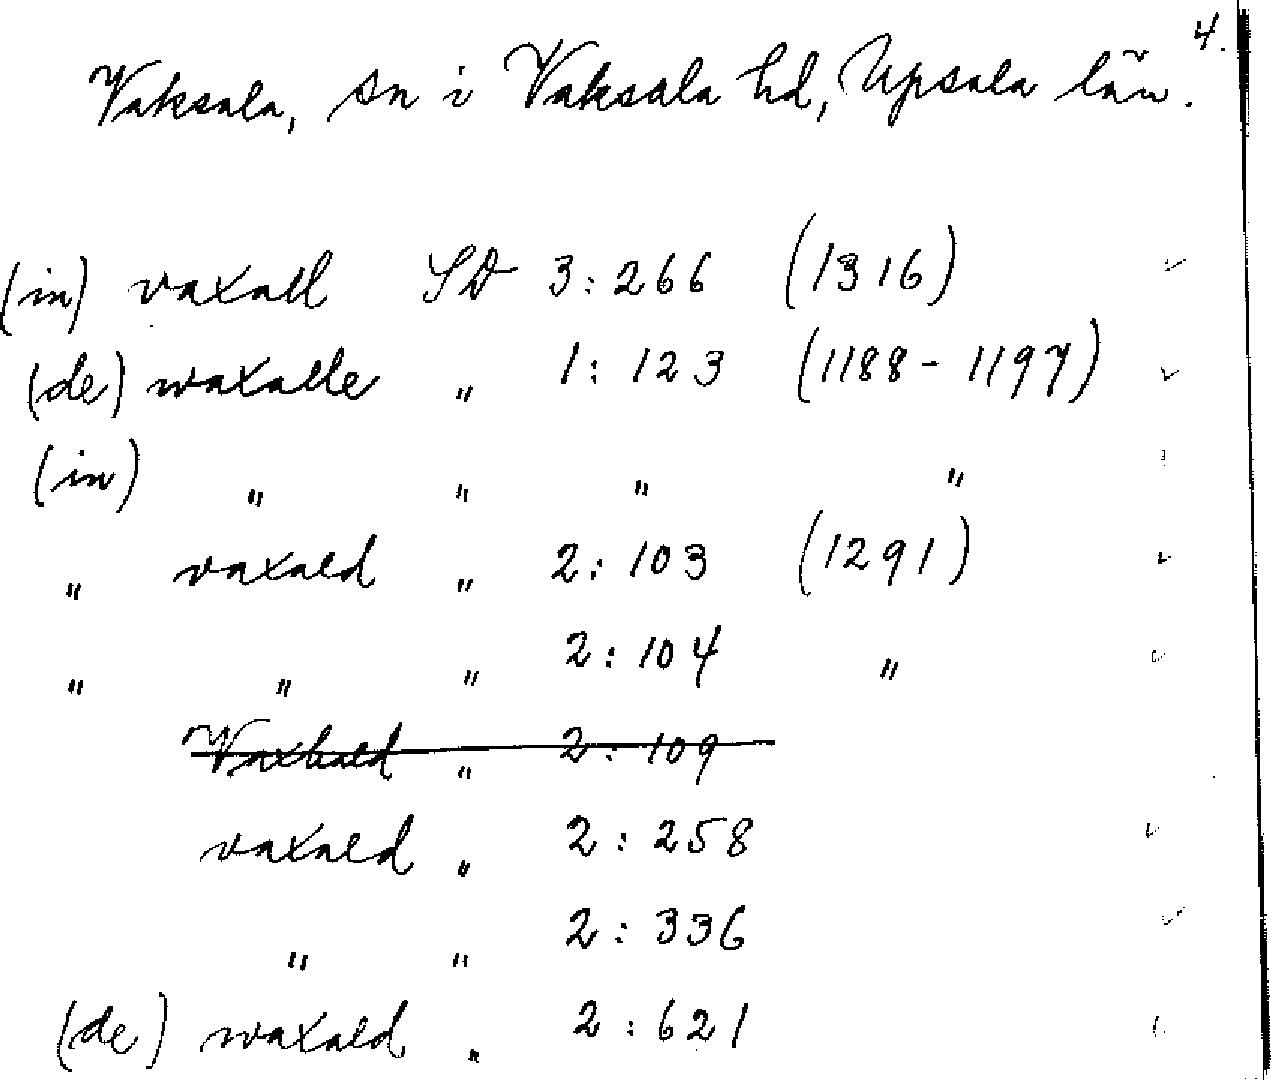 4.
Vaksala, sn i Vaksala hd, Upsala län.
(in) vaxall SD 3:266 (1316)
(de) waxalle " 1:123 (1188-1197)
(in) " " " "
" vaxald " 2:103 (1291)
" " " 2:104 "
Vaxhald " 2:109
vaxald " 2:258
" " 2:336
(de) waxald " 2:621